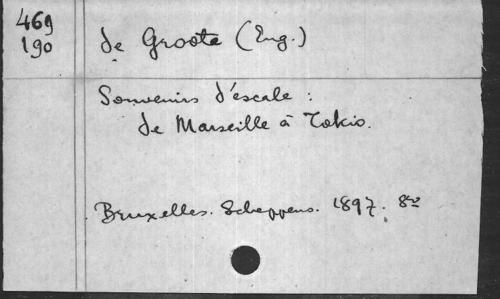 469
190
de Groote (Eug.)
Souvenirs d'escale :
de Marseille à Tokio.
Bruxelles. Scheppens. 1897. 8vo